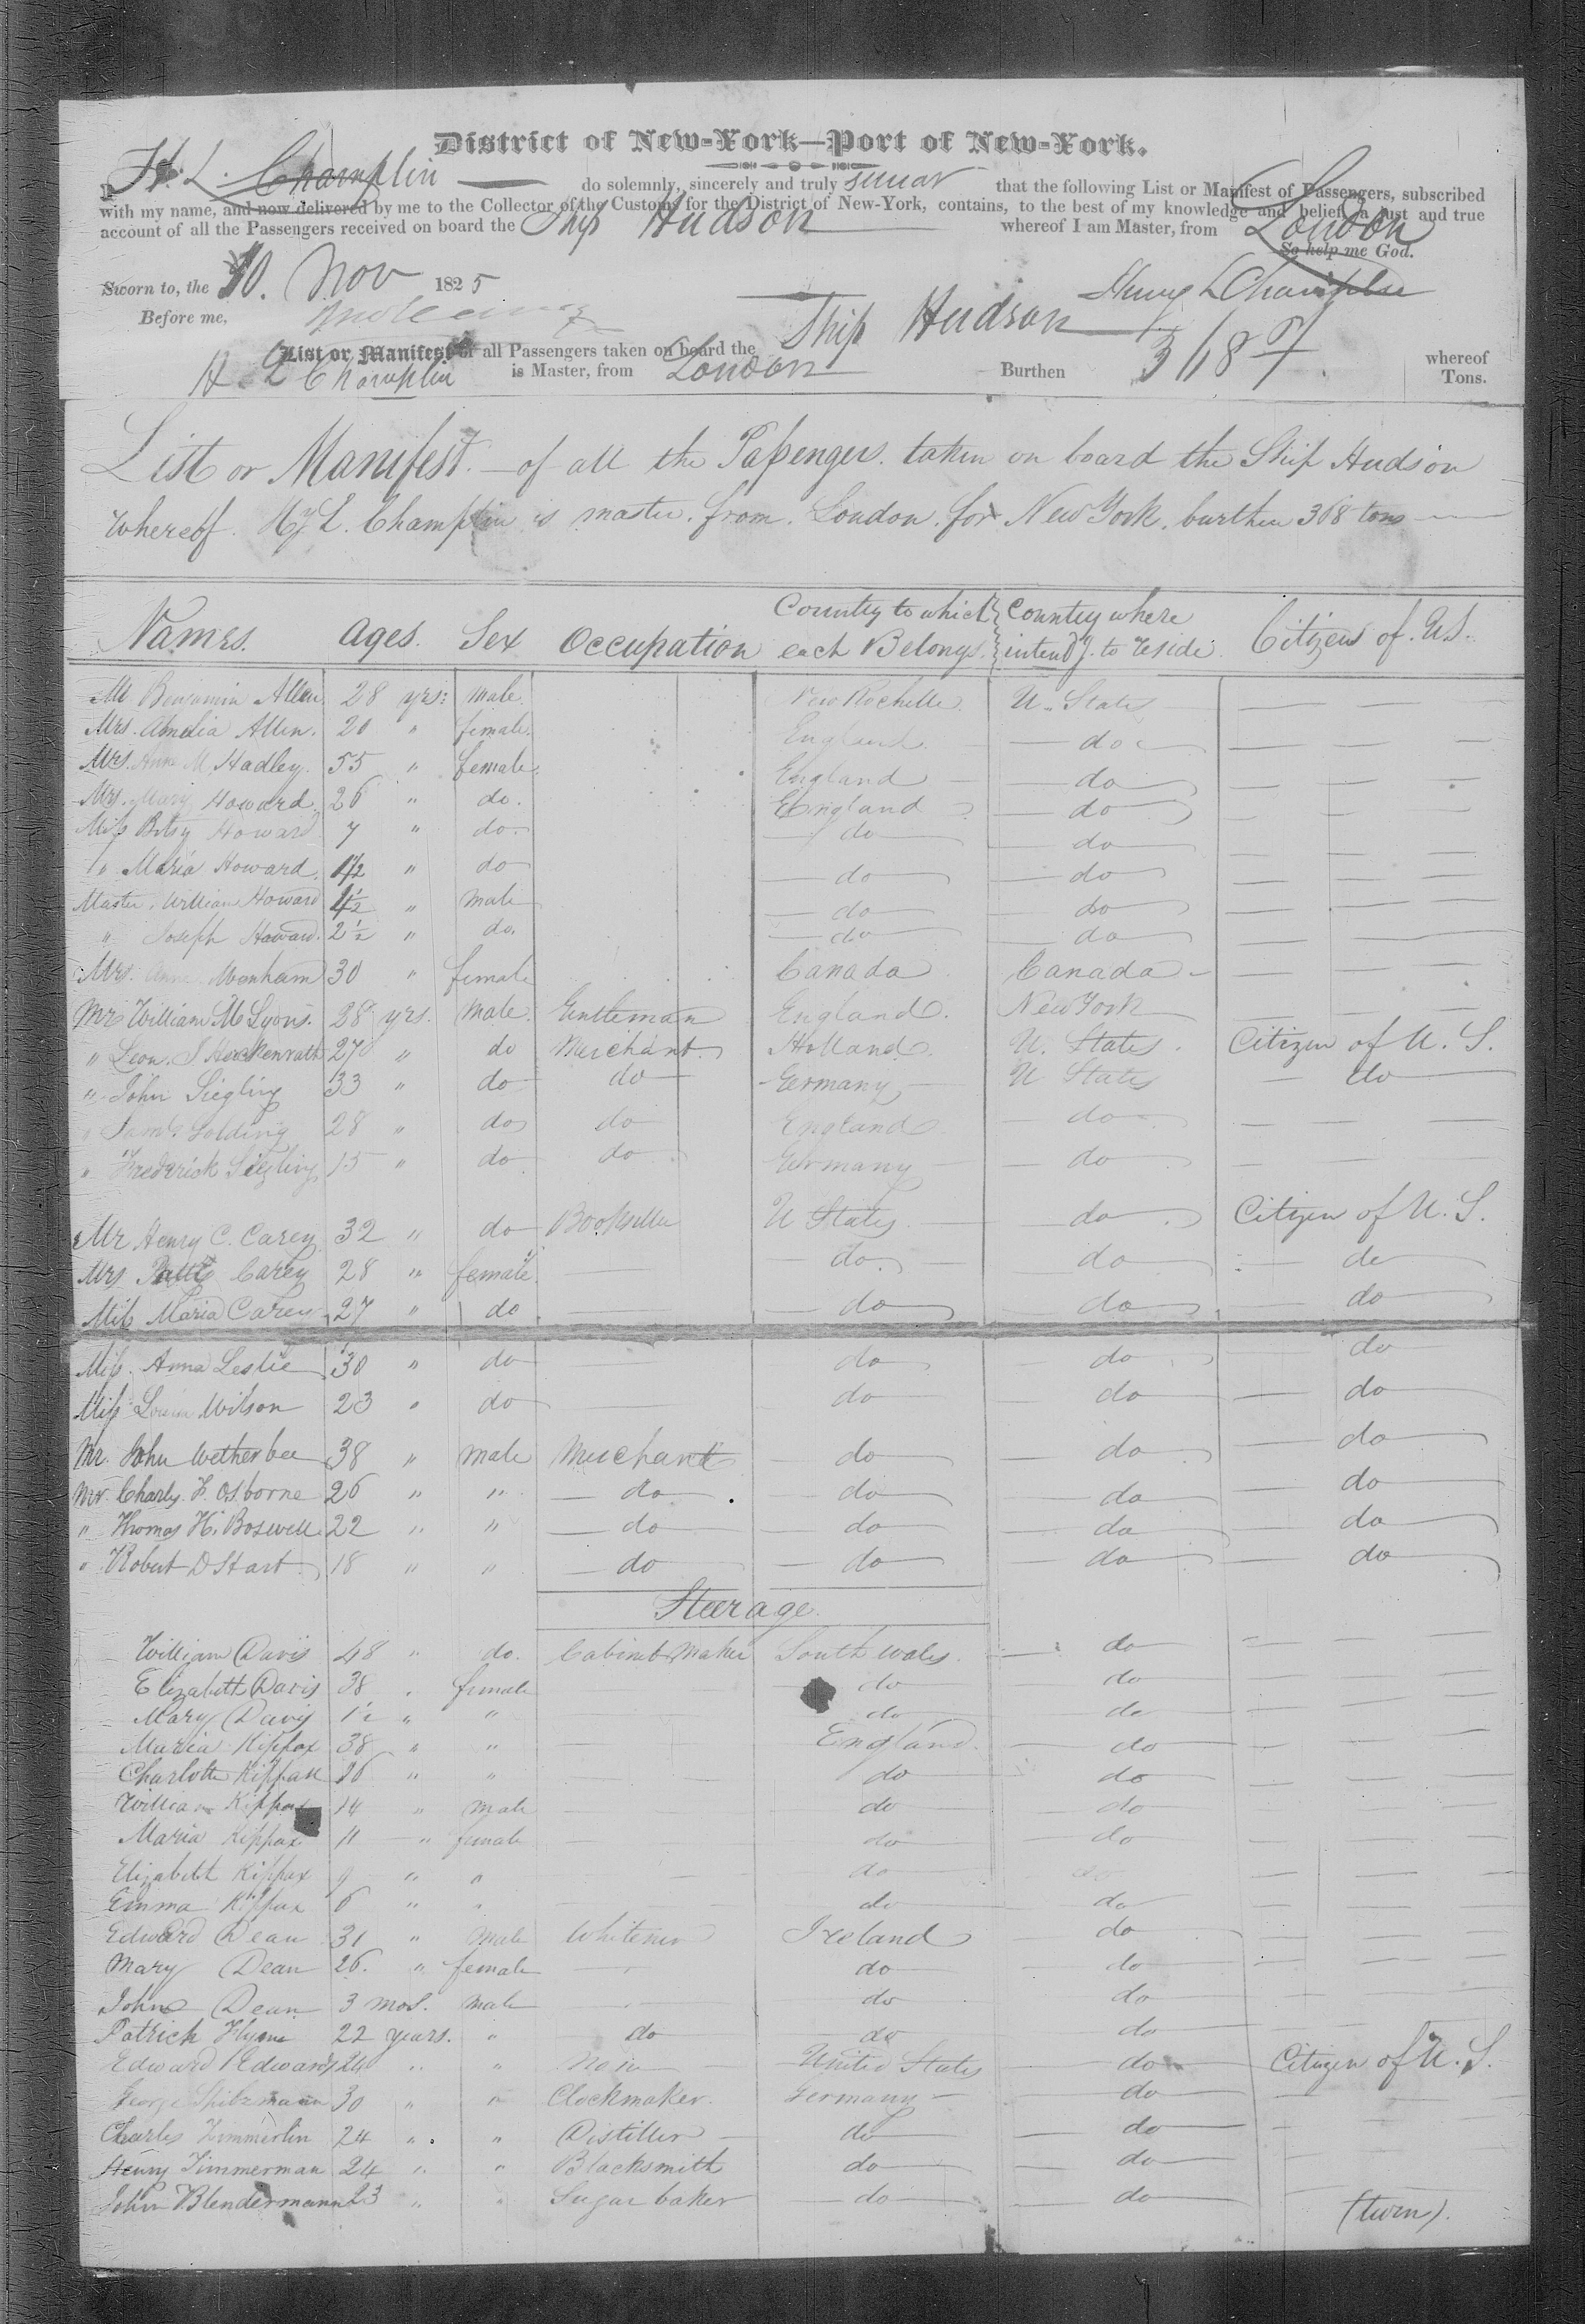 District of New-York—Port of New-York.
H. L. Champlin do solemnly, sincerely and truly swear that the following List or Manifest of Passengers, subscribed
with my name, and now delivered by me to the Collector of the Customs for the District of New-York, contains, to the best of my knowledge and belief, a just and true
account of all the Passengers received on board the Ship Hudson whereof I am Master, from London
So help me God.
Sworn to, the 10. Nov 1825
Henry L Champlin
Before me,
List or Manifest of all Passengers taken on board the Ship Hudson whereof
H. L Champlin is Master, from London Burthen 368 Tons.
List or Manifest. of all the Passengers. taken on board the Ship Hudson
Whereof. Hy L. Champlin is master. from. London. for New York. burthen 368 tons
Names. Ages. Sex Occupation Country to which each Belongs. Country where intendg. to reside Citizens of. U.S.
Mr Benjamin Allen 28 yrs: male. New Rochelle. U. States
Mrs. Amelia Allen. 20 " female. England. do
Mrs. Anne M Hadley. 55 " female. England do
Mrs. Mary Howard. 26 " do. England do
Miss Betsy Howard 7 " do. do do
" Maria Howard. 1½ " do do do
Master. William Howard 4½ " male do do
" Joseph Howard. 2½ " do. do do
Mrs. Anne Monham 30 " female Canada Canada
Mr William M Lyons. 28 yrs. Male. Gentleman England. New York
" Leon. S Hockenrath 27 " do Merchant. Holland. U. States. Citizen of U. S.
" John Siegling 33 " do do Germany U States do
" Saml. Golding 28 " do do England do
" Frederick Siegling 15 " do do Germany do
Mr Henry C. Carey 32 " do Bookseller U States do Citizen of U. S.
Mrs Patts Carey 28 " female. do. do do
Miss Maria Carey 27 " do do do do
Miss. Anna Leslie 30 " do do do do
Miss Louisa Wilson 23 " do do do do
Mr. John Wetherbee 38 " male Merchant do do do
Mr. Charls. F. Osborne 26 " " do do do do
" Thomas H. Boswell 22 " " do do do do
" Robert D Hart 18 " " do do do do
Steerage.
William Davis 48 " do. Cabinet Maker South wales. do
Elizabeth Davis 38 " female do do
Mary Davis 1½ " " do do
Maria Kippax 38 " " England. do
Charlotte Kippax 26 " " do do
William Kippax 14 " male do do
Maria Kippax 11 " female do do
Elizabeth Kippax 9 " " do do
Emma Kippax 6 " " do do
Edward Dean 31 " Male Whitener Ireland do
Mary Dean 26. " female do do
John Dean 3 mos. male do do
Patrick Flynn 22 years. " do do do
Edward Edwards 24 " " None United States do Citizen of U. S.
George Spitzmann 30 " " Clockmaker. Germany do
Charles Zimmerlin 24 " " Distiller do do
Henry Timmerman 24 " " Blacksmith do do
John Blendermann 23 " " Sugar baker do do
(turn).